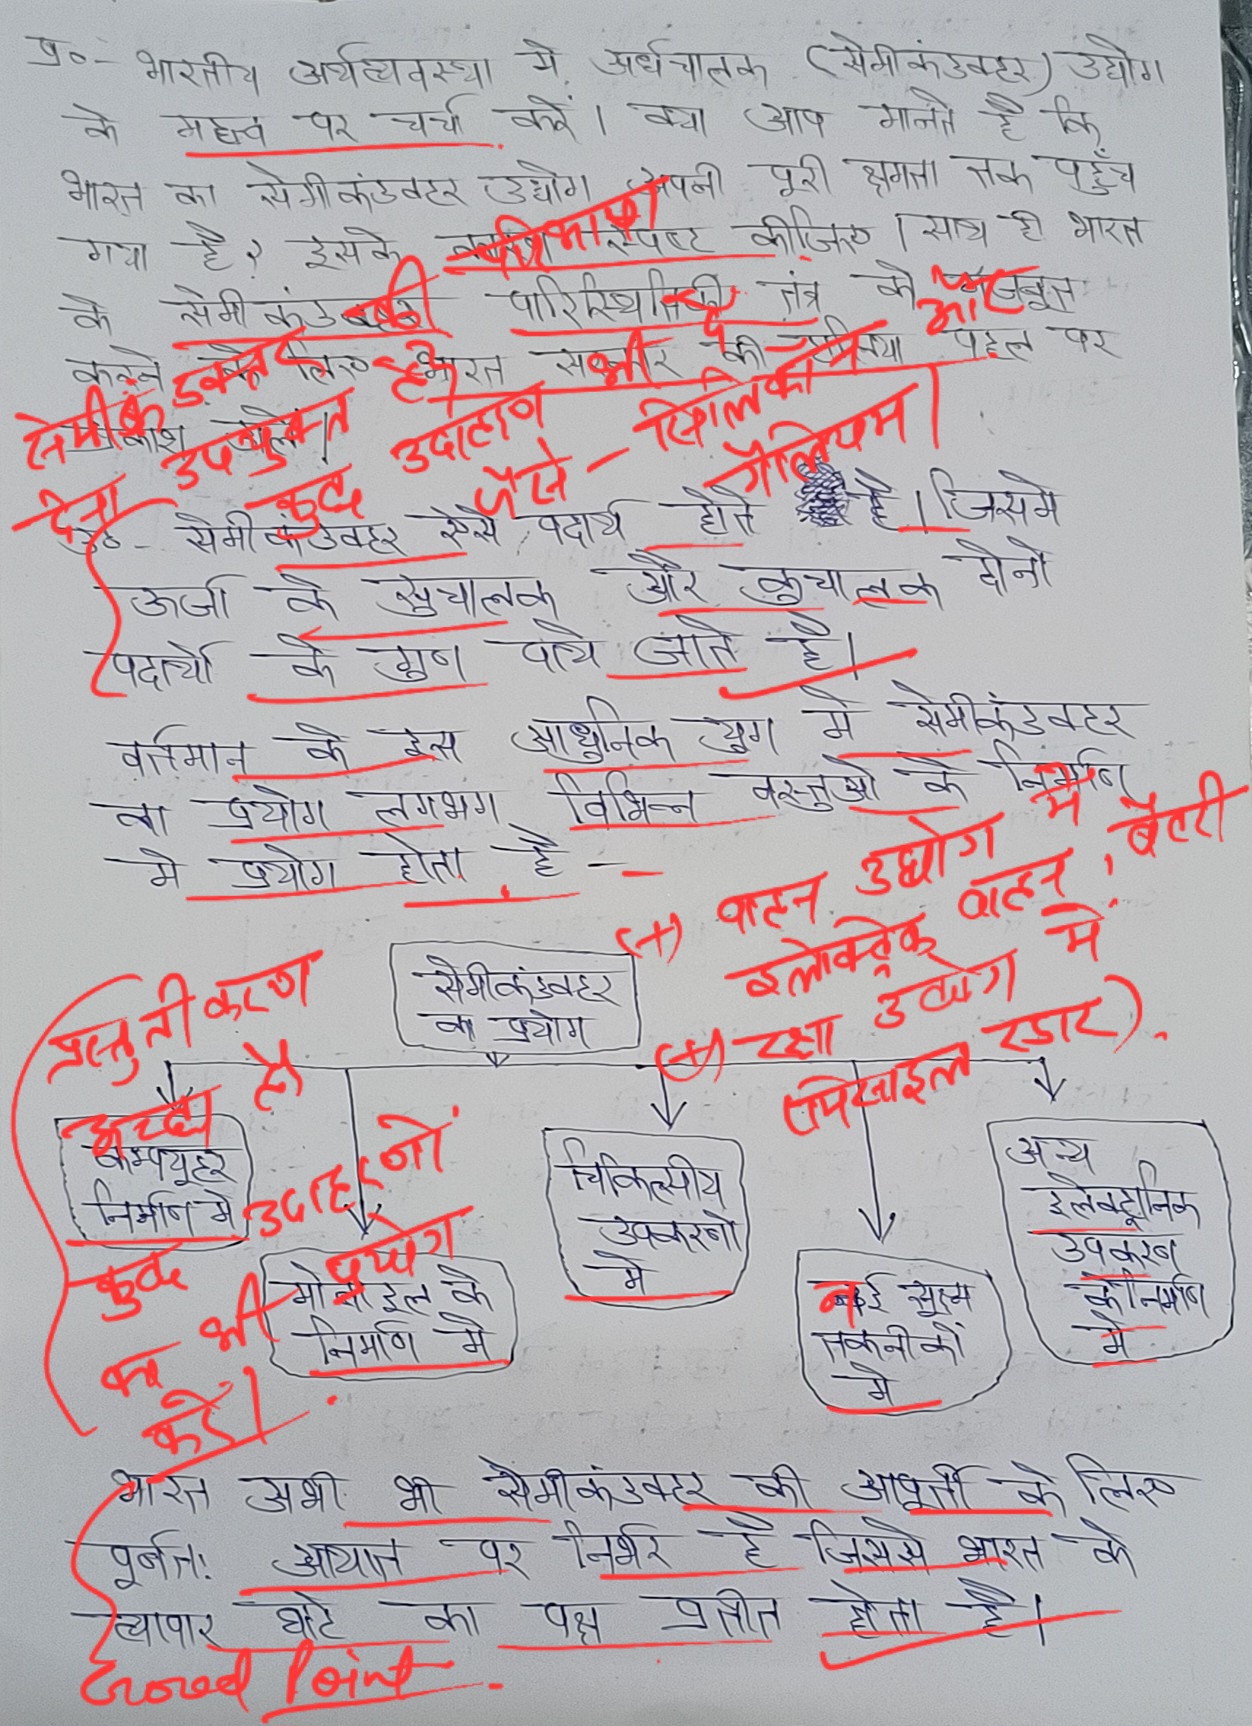 प्र०- भारतीय अर्थव्यवस्था मे अर्धचालक (सेमीकंडक्टर) उद्योग
के महत्व पर चर्चा करें। क्या आप मानते है कि
भारत का सेमीकंडक्टर उद्योग अपनी पूरी क्षमता तक पहुँच
गया है? इसके स्पष्ट कीजिए। साथ ही भारत
के सेमीकंडक्टर पारिस्थितिकी तंत्र को मजबूत
करने के लिए भारत सरकार की पहल पर
सेमीकंडक्टर की परिभाषा
देना उपयुक्त है।
कुछ उदाहरण भी दें और
जैसे - सिलिकॉन
गैलियम।
उ०- सेमीकंडक्टर ऐसे पदार्थ होते है। जिसमे
ऊर्जा के सुचालक और कुचालक दोनो
पदार्थो के गुण पाये जाते है।
वर्तमान के इस आधुनिक युग मे सेमीकंडक्टर
का प्रयोग लगभग विभिन्न वस्तुओ के निर्माण
मे प्रयोग होता है -
(+) वाहन उद्योग में
इलेक्ट्रिक वाहन, बैटरी
(+) रक्षा उद्योग में
(मिसाइल रडार).
सेमीकंडक्टर
का प्रयोग
प्रस्तुतीकरण
अच्छा है
कुछ उदाहरनों
का भी प्रयोग
करें।
कम्प्यूटर
निर्माण मे
मोबाइल के
निर्माण मे
चिकित्सीय
उपकरणो
मे
नई सूक्ष्म
तकनीकों
मे
अन्य
इलेक्ट्रानिक
उपकरण
के निर्माण
मे
भारत अभी भी सेमीकंडक्टर की आपूर्ती के लिए
पूर्णतः आयात पर निर्भर है जिससे भारत के
व्यापार घाटे का पक्ष प्रतीत होता है।
Good Point.